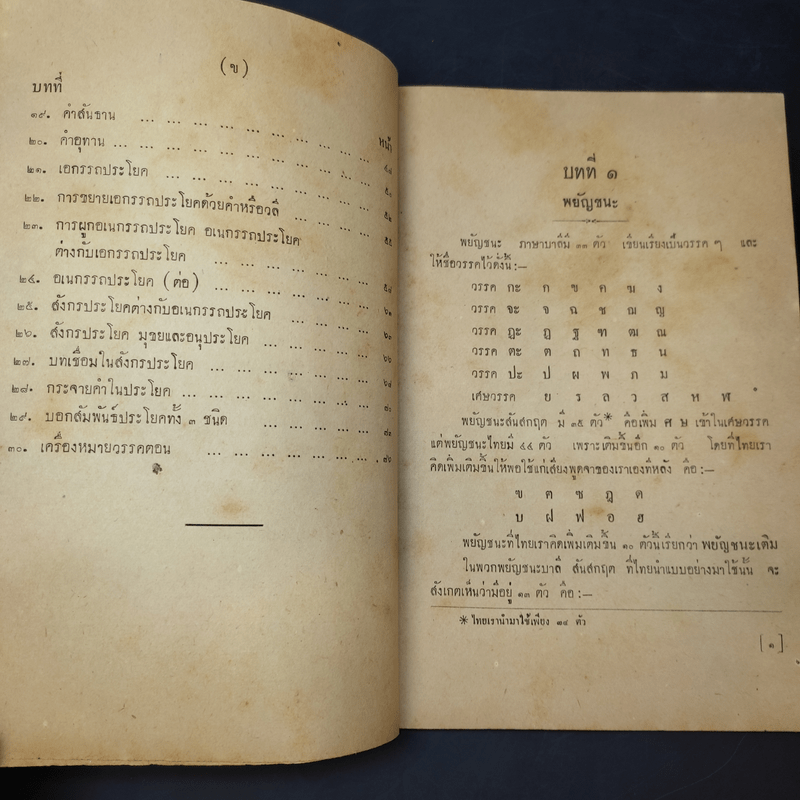 (ข)
บทที่
หน้า
๑๙. คำสันธาน ... ... ... ... ... ... ...
๒๐. คำอุทาน ... ... ... ... ... ... ...
๒๑. เอกรรถประโยค ... ... ... ... ... ...
๒๒. การขยายเอกรรถประโยคด้วยคำหรือวลี ... ...
๒๓. การผูกอเนกรรถประโยค อเนกรรถประโยค
ต่างกับเอกรรถประโยค ... ... ... ... ...
๒๔. อเนกรรถประโยค (ต่อ) ... ... ... ... ...
๒๕. สังกรประโยคต่างกับอเนกรรถประโยค ... ... ...
๒๖. สังกรประโยค มุขยและอนุประโยค ... ... ...
๒๗. บทเชื่อมในสังกรประโยค ... ... ... ... ...
๒๘. กระจายคำในประโยค ... ... ... ... ... ...
๒๙. บอกสัมพันธ์ประโยคทั้ง ๓ ชนิด ... ... ... ...
๓๐. เครื่องหมายวรรคตอน ... ... ... ... ...
บทที่ ๑
พยัญชนะ
พยัญชนะ ภาษาบาลีมี ๓๓ ตัว เขียนเรียงเป็นวรรค ๆ และ
ให้ชื่อวรรคไว้ดั่งนี้:—
วรรค กะ ก ข ค ฆ ง
วรรค จะ จ ฉ ช ฌ ญ
วรรค ฏะ ฏ ฐ ฑ ฒ ณ
วรรค ตะ ต ถ ท ธ น
วรรค ปะ ป ผ พ ภ ม
เศษวรรค ย ร ล ว ส ห ฬ ํ
พยัญชนะสันสกฤต มี ๓๕ ตัว* คือเพิ่ม ศ ษ เข้าในเศษวรรค
แต่พยัญชนะไทยมี ๔๔ ตัว เพราะเติมขึ้นอีก ๑๐ ตัว โดยที่ไทยเรา
คิดเพิ่มเติมขึ้นให้พอใช้แก่เสียงพูดจาของเราเองทีหลัง คือ :—
ฃ ฅ ซ ฎ ด
บ ฝ ฟ อ ฮ
พยัญชนะที่ไทยเราคิดเพิ่มเติมขึ้น ๑๐ ตัวนี้เรียกว่า พยัญชนะเติม
ในพวกพยัญชนะบาลี สันสกฤต ที่ไทยนำแบบอย่างมาใช้นั้น จะ
สังเกตเห็นว่ามีอยู่ ๑๓ ตัว คือ :—
* ไทยเรานำมาใช้เพียง ๓๔ ตัว
[๑]